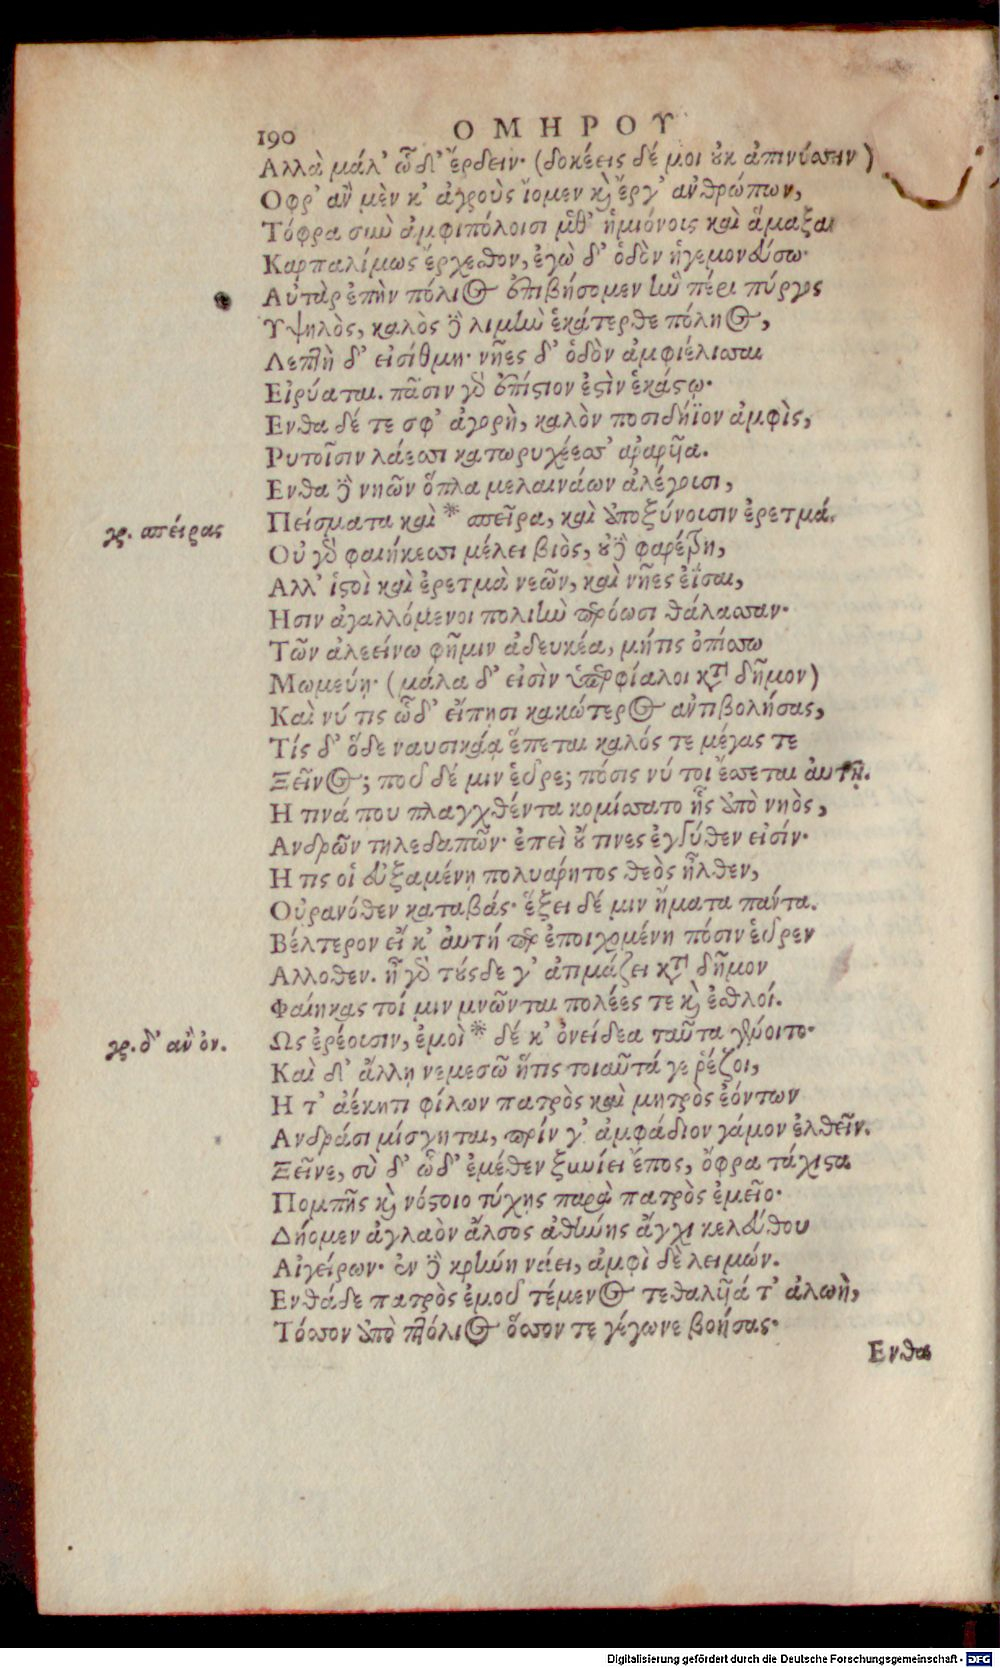 190 ΟΜΗΡΟΥ
Αλλὰ μάλ' ὧδ' ἔρδειν· (δοκέεις δέ μοι ȣκ ἀπινύσσειν)
Οφρ' ἂν μὲν κ' ἀγροὺς ἴομεν κ̀ ἔργ' ἀνθρώπων,
Τόφρα σὺν ἀμφιπόλοισι μεθ' ἡμιόνοις καὶ ἅμαξαν
Καρπαλίμως ἔρχεσθον, ἐγὼ δ' ὁδὸν ἡγεμονεύσω·
Αὐτὰρ ἐπὴν πόλιος ἐπιβήσομεν ἣν πέρι πύργος
Υψηλὸς, καλὸς δὲ λιμὴν ἑκάτερθε πόληος,
Λεπτὴ δ' εἰσίθμη· νῆες δ' ὁδὸν ἀμφιέλισσαι
Εἰρύαται. πᾶσιν γὰρ ἐπίστιον ἐστὶν ἑκάστῳ·
Ενθα δέ τε σφ' ἀγορὴ, καλὸν ποσιδήϊον ἀμφὶς,
Ρυτοῖσιν λάεσσι κατωρυχέεσσ' ἀραρυῖα.
Ενθα δὲ νηῶν ὅπλα μελαινάων ἀλέγουσι,
γρ. σπείρας Πείσματα καὶ * σπεῖρα, καὶ ὑποξύνουσιν ἐρετμά.
Οὐ γὰρ φαιήκεσσι μέλει βιὸς, ȣδὲ φαρέτρη,
Αλλ' ἱστοὶ καὶ ἐρετμὰ νεῶν, καὶ νῆες ἐΐσαι,
Ησιν ἀγαλλόμενοι πολιὴν περόωσι θάλασσαν·
Τῶν ἀλεείνω φῆμιν ἀδευκέα, μήτις ὀπίσσω
Μωμεύῃ· (μάλα δ' εἰσὶν ὑπερφίαλοι κατὰ δῆμον)
Καὶ νύ τις ὧδ' εἴπῃσι κακώτερος ἀντιβολήσας,
Τίς δ' ὅδε ναυσικάᾳ ἕπεται καλός τε μέγας τε
Ξεῖνος; ποῦ δέ μιν εὗρε; πόσις νύ τοι ἔσσεται ἀυτῇ.
Η τινά που πλαγχθέντα κομίσσατο ἧς ὑπὸ νηὸς,
Ανδρῶν τηλεδαπῶν· ἐπεὶ ȣ́ τινες ἐγγύθεν εἰσίν·
Η τις οἱ εὐξαμένῃ πολυάρητος θεὸς ἦλθεν,
Οὐρανόθεν καταβάς· ἕξει δέ μιν ἤματα πάντα.
Βέλτερον εἴ κ' ἀυτή περ ἐποιχομένη πόσιν εὗρεν
Αλλοθεν. ἦ γὰρ τούσδε γ' ἀτιμάζει κατὰ δῆμον
Φαίηκας τοί μιν μνῶνται πολέες τε κ̀ ἐσθλοί.
γρ. δ' ἂν ὀν. Ως ἐρέουσιν, ἐμοὶ * δέ κ' ὀνείδεα ταῦτα γένοιτο·
Καὶ δ' ἄλλῃ νεμεσῶ ἥτις τοιαῦτά γε ῥέζοι,
Η τ' ἀέκητι φίλων πατρὸς καὶ μητρὸς ἐόντων
Ανδράσι μίσγηται, πρίν γ' ἀμφάδιον γάμον ἐλθεῖν.
Ξεῖνε, σὺ δ' ὧδ' ἐμέθεν ξυνίει ἔπος, ὄφρα τάχιστα
Πομπῆς κ̀ νόστοιο τύχῃς παρὰ πατρὸς ἐμεῖο·
Δήομεν ἀγλαὸν ἄλσος ἀθήνης ἄγχι κελεύθου
Αἰγείρων· ἐν δὲ κρήνη νάει, ἀμφὶ δὲ λειμών.
Ενθάδε πατρὸς ἐμοῦ τέμενος τεθαλυῖά τ' ἀλωὴ,
Τόσσον ὑπὸ πτόλιος ὅσσον τε γέγωνε βοήσας·
Ενθα
Digitalisierung gefördert durch die Deutsche Forschungsgemeinschaft - DFG